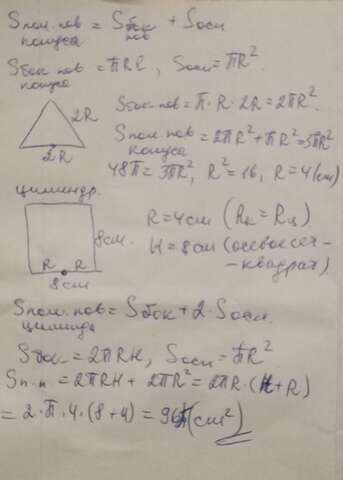 Sпол. пов = Sбок пов + Sосн
конуса
Sбок. пов = πRl, Sосн = πR²
конуса
2R
2R
Sбок. пов = π · R · 2R = 2πR².
Sпол. пов = 2πR² + πR² = 3πR²
конуса
48π = 3πR², R² = 16, R = 4(см)
цилиндр.
8см.
R R
8см
R = 4см (Rк = Rц)
H = 8см (осевое сеч-
- квадрат)
Sпол. пов = Sбок + 2 · Sосн.
цилинда
Sбок = 2πRH, Sосн = πR²
Sп.п = 2πRH + 2πR² = 2πR · (H + R)
= 2 · π · 4 · (8 + 4) = 96π(см²)